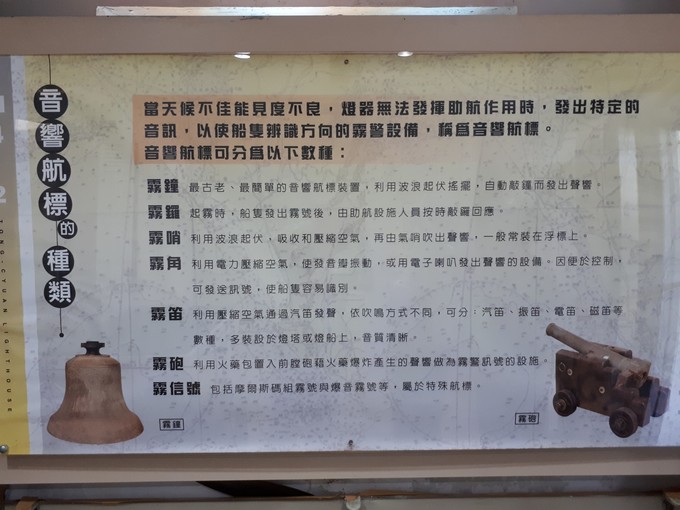 音響航標的種類
當天候不佳能見度不良，燈器無法發揮助航作用時，發出特定的
音訊，以使船隻辨識方向的霧警設備，稱為音響航標。
音響航標可分為以下數種：
霧鐘 最古老、最簡單的音響航標裝置，利用波浪起伏搖擺，自動敲鐘而發出聲響。
霧鑼 起霧時，船隻發出霧號後，由助航設施人員按時敲鑼回應。
霧哨 利用波浪起伏，吸收和壓縮空氣，再由氣哨吹出聲響，一般常裝在浮標上。
霧角 利用電力壓縮空氣，使發音瓣振動，或用電子喇叭發出聲響的設備。因便於控制，
可發送訊號，使船隻容易識別。
霧笛 利用壓縮空氣通過汽笛發聲，依吹鳴方式不同，可分：汽笛、振笛、電笛、磁笛等
數種，多裝設於燈塔或燈船上，音質清晰。
霧砲 利用火藥包置入前膛砲藉火藥爆炸產生的聲響做為霧警訊號的設施。
霧信號 包括摩爾斯碼組霧號與爆音霧號等，屬於特殊航標。
霧鐘
霧砲
CYUAN LIGHTHOUSE